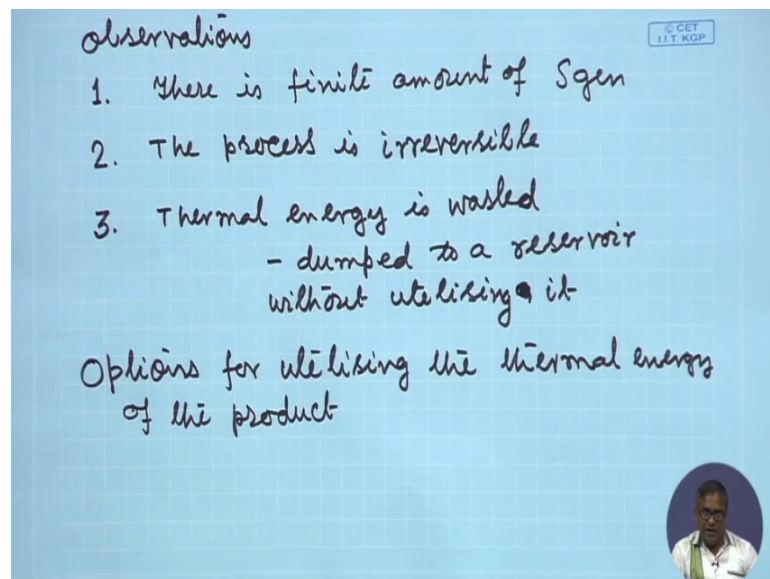 Observations
© CET
I.I.T. KGP
1. There is finite amount of Sgen
2. The process is irreversible
3. Thermal energy is wasted
- dumped to a reservoir
without utelising it
Options for utelising the thermal energy
of the product